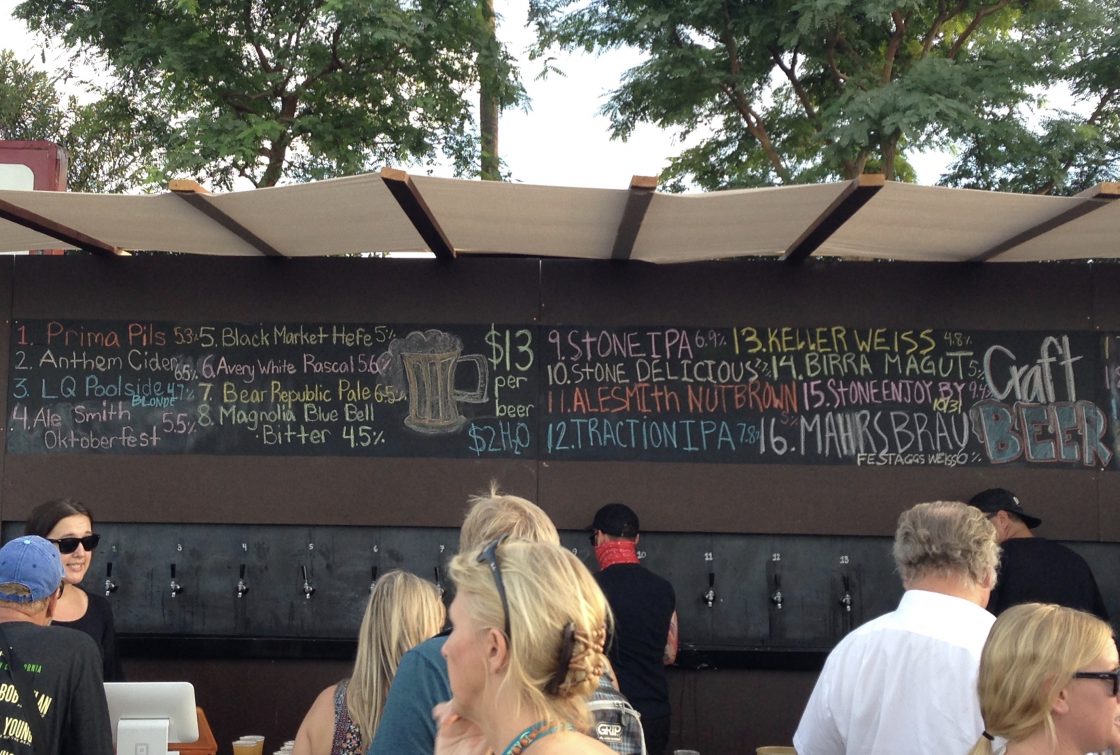 1. Prima Pils 5.3%
2. Anthem Cider 6.5%
3. LQ Poolside 4.7%
BLONDE
4. Ale Smith 5.5%
Oktoberfest
5. Black Market Hefe 5%
6. Avery White Rascal 5.6%
7. Bear Republic Pale 6.5%
8. Magnolia Blue Bell
Bitter 4.5%
$13
per
beer
$2 H2O
9. STONE IPA 6.9%
10. STONE DELICIOUS
11. ALESMITH NUTBROWN
12. TRACTION IPA 7.8%
13. KELLER WEISS 4.8%
14. BIRRA MAGUT
15. STONE ENJOY BY 9.4%
10/31
16. MAHRSBRÄU
FESTAGGS WEISSO %
Craft
BEER
3
4
5
6
7
10
11
12
13
BOB DYLAN
YOUNG
GRIP